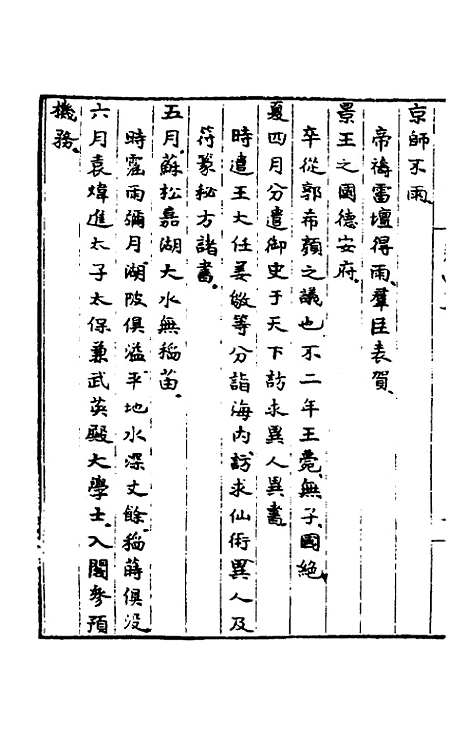 京師不雨
帝禱雷壇得雨、羣臣表賀、
景王之國德安府、
卒從郭希顏之議也不二年王薨、無子、國絶
夏四月分遣御史于天下訪求異人異書
時遣王大任姜敏等分詣海内、訪求仙術異人及
符篆秘方諸書、
五月、蘇松嘉湖大水無稻苗、
時霪雨彌月、湖陂俱溢、平地水深丈餘、稻蒔俱没
六月袁煒進太子太保兼武英殿大學士、入閣參預
機務、